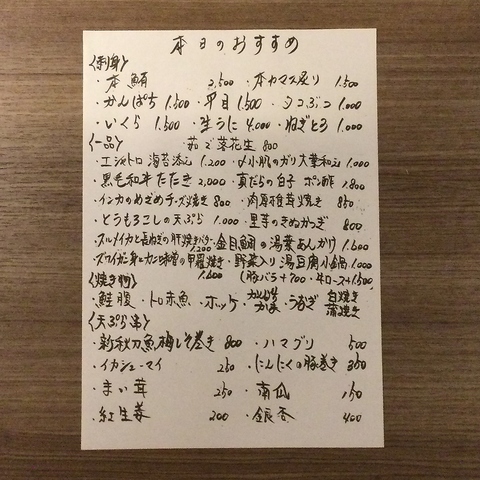 本日のおすすめ
〈刺身〉
・本鮪 2,500 ・本カマス炙り 1.500
・かんぱち 1.500 ・平目 1.500 ・タコぶつ 1.000
・いくら 1.500 ・生うに 4.000 ・ねぎとろ 1.000
〈一品〉 茹で落花生 800
・エンガワトロ 海苔添え 1.200 ・〆小肌のガリ大葉和え 1.000
・黒毛和牛 たたき 2,000 ・真だらの白子 ポン酢 1.800
・インカのめざめチーズ焼き 800 ・肉厚椎茸焼き 850
・とうもろこしの天ぷら 1.000 ・里芋のきぬかつぎ 800
・スルメイカと長ねぎの肝焼きバター 1.200 ・金目鯛の湯葉あんかけ 1.600
・ズワイガニ身とカニ味噌の甲羅焼き 1.600 ・野菜入り湯豆腐小鍋 1.000
〈焼き物〉 (豚バラ+700 ・牛ロース+1.500)
・鮭腹 ・トロ赤魚 ・ホッケ ・かんぱちかま ・うなぎ 白焼き 蒲焼き
〈天ぷら串〉
・新秋刀魚梅しそ巻き 800 ・ハマグリ 500
・イカシューマイ 250 ・にんにくの豚巻き 350
・まい茸 250 ・南瓜 150
・紅生姜 200 ・銀杏 400